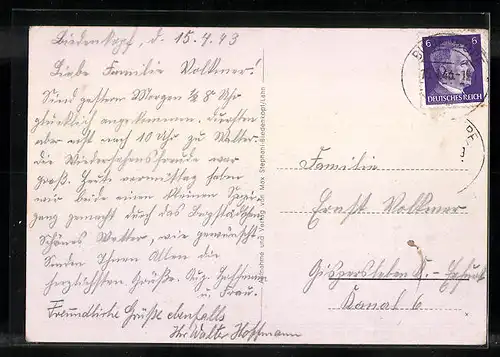 Biedenkopf, d. 15.4.43
Liebe Familie Volkmer!
Sind gestern Morgen ½ 8 Uhr
glücklich angekommen. Durften
aber erst nach 10 Uhr zu Walter.
die Wiedersehensfreude war
groß. Heute vormittag haben
wir beide einen kleinen Spazier-
gang gemacht durch das Bergstädtchen
Schönes Wetter, wie gewünscht
Senden Ihnen Allen die
herzlichsten Grüße. Aug. Hoffmann
u. Frau.
Freundliche Grüße ebenfalls
Ihr Walter Hoffmann
Aufnahme und Verlag von Max Stephani, Biedenkopf/Lahn
6 6
DEUTSCHES REICH
Familie
Ernst Volkmer
Gispersleben K.-Erfurt
Kanal 6